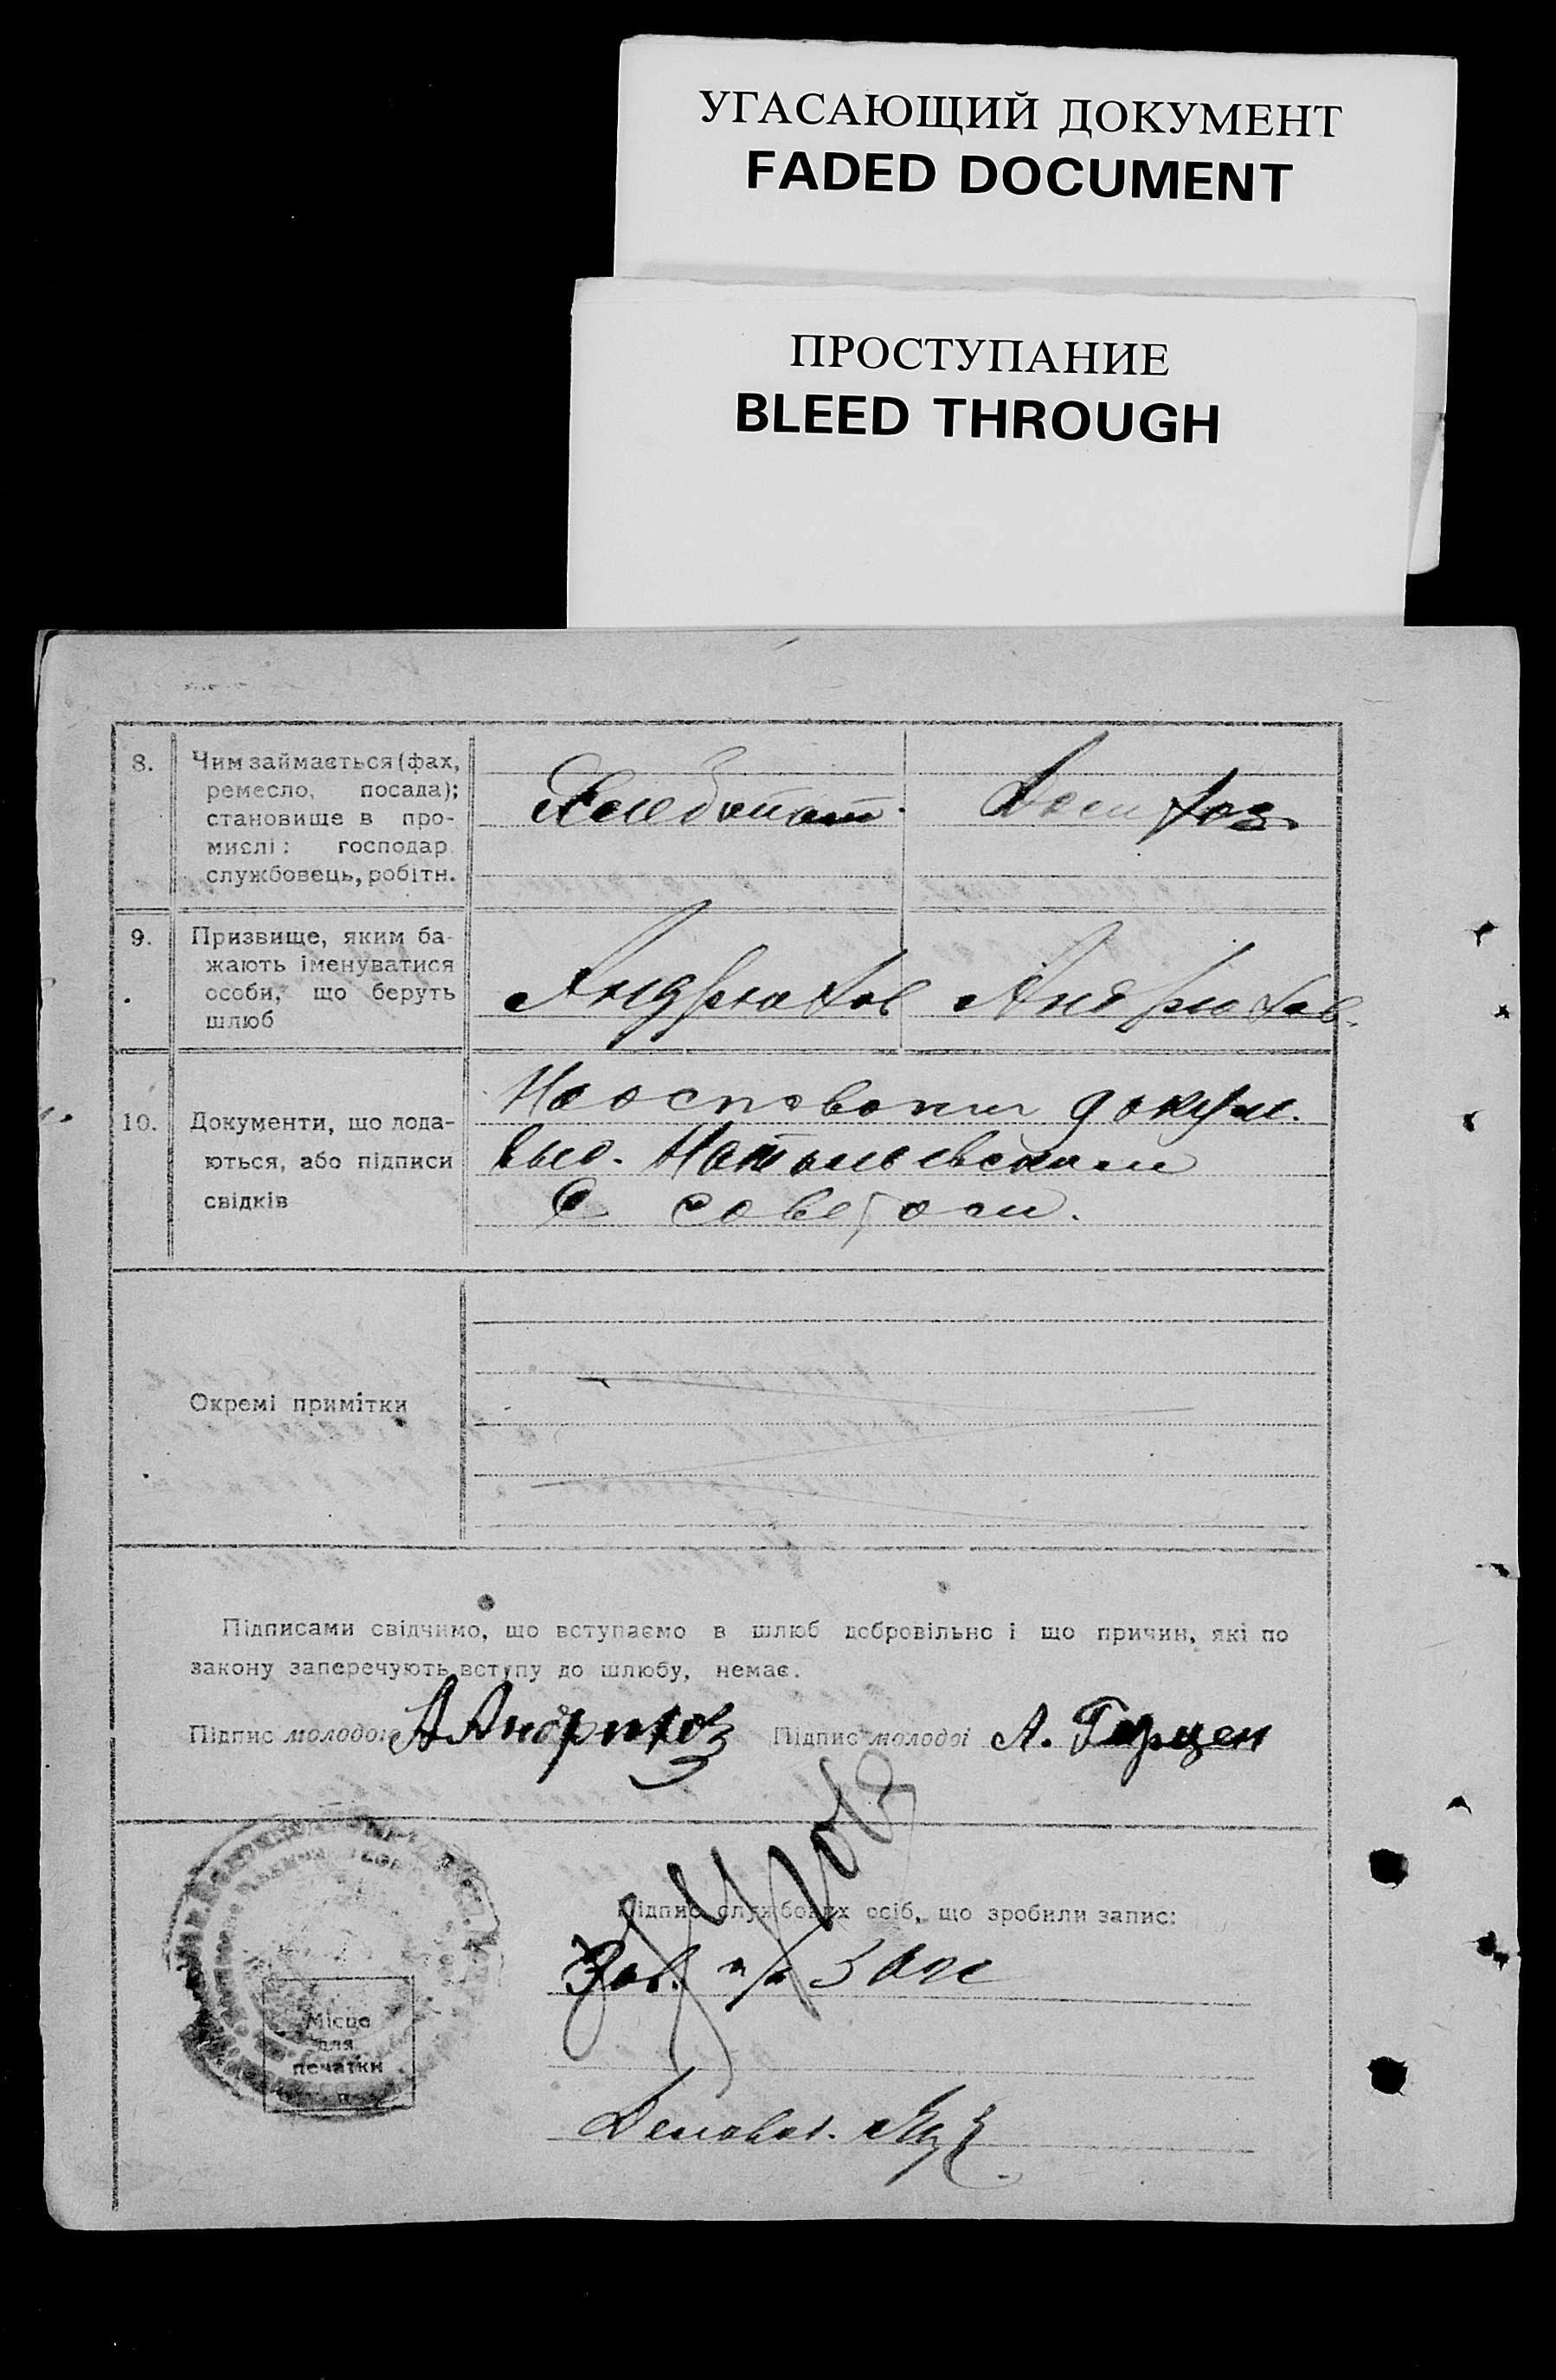 УГАСАЮЩИЙ ДОКУМЕНТ
FADED DOCUMENT
ПРОСТУПАНИЕ
BLEED THROUGH
8.
Чим займається (фах,
ремесло, посада);
становище в про-
мислі: господар
службовець, робітн.
Хлебопаш. Дом хоз.
9.
Призвище, яким ба-
жають іменуватися
особи, що беруть
шлюб
Андрюхов Андрюхов.
10.
Документи, що пода-
ються, або підписи
свідків
На основании докум.
выд. Натальевским
С советом.
Окремі примітки
Підписами свідчимо, що вступаємо в шлюб добровільно і що причин, які по
закону заперечують вступу до шлюбу, немає.
Підпис молодого А Андрюхов Підпис молодої А. Герцен
Підпис службових осіб, що зробили запис:
Зав. п/о Загс
Місце
для
печатки
Деловод.